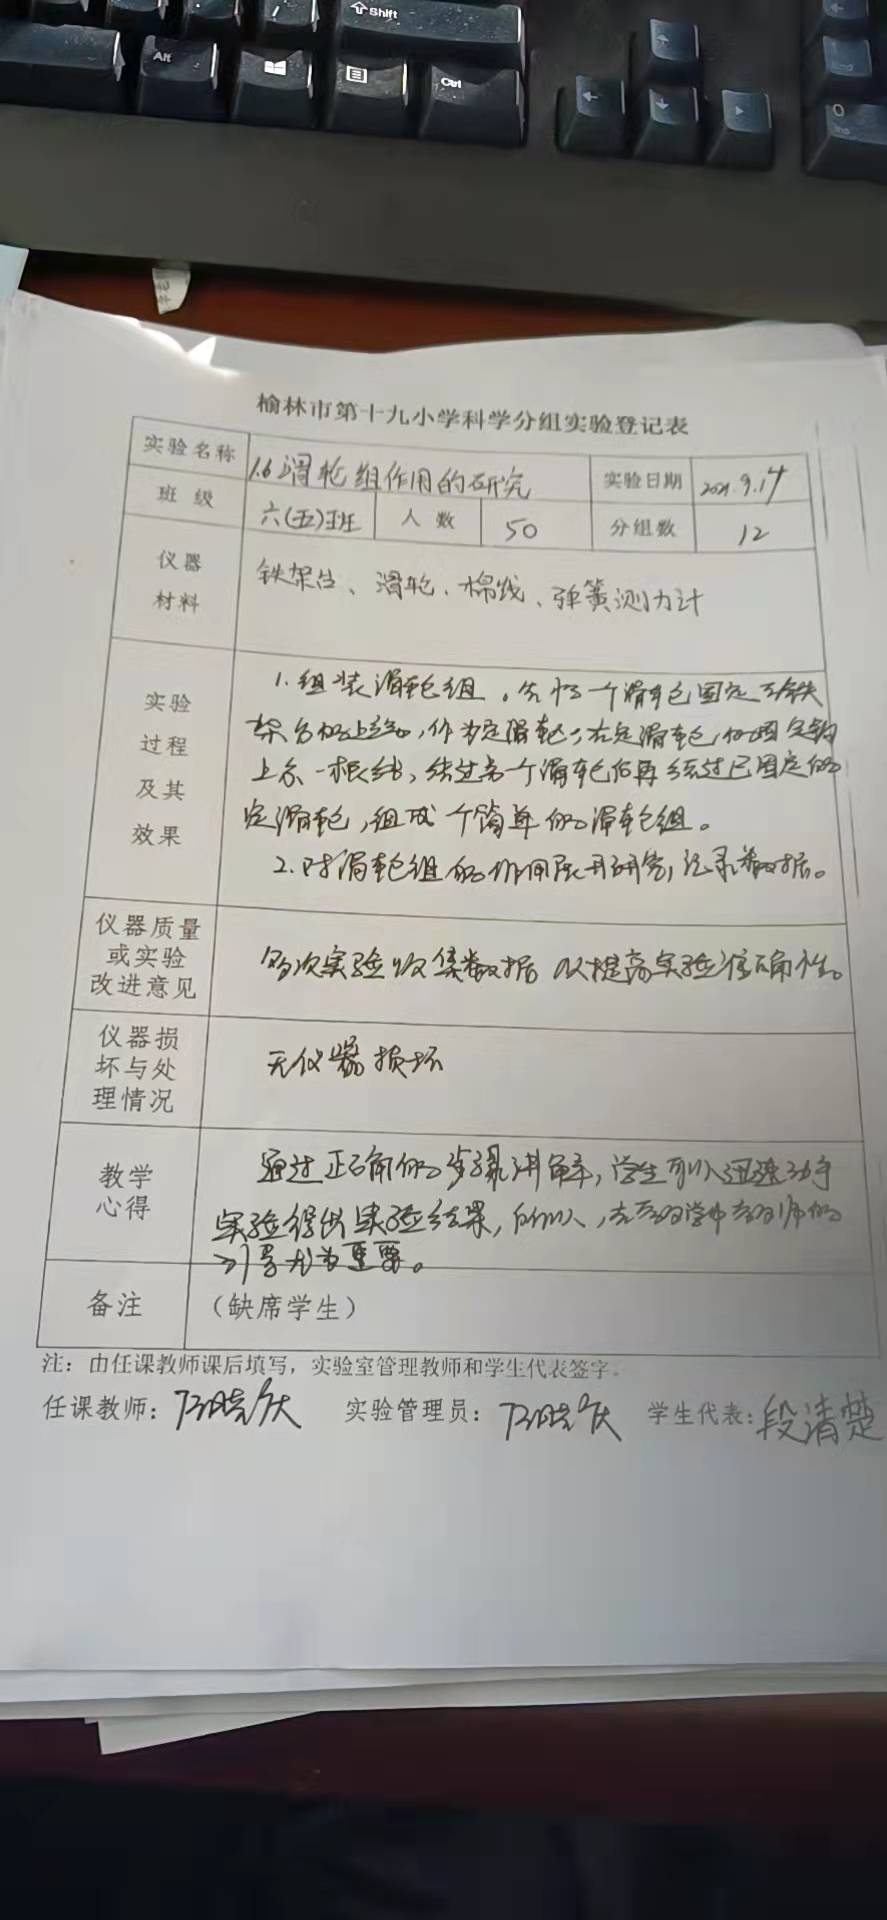 Shift
Alt
Ctrl
End
0
Ins
榆林市第十九小学科学分组实验登记表
实验名称 1.6滑轮组作用的研究 实验日期 2021.9.14
班级 六(五)班 人数 50 分组数 12
仪器材料 铁架台、滑轮、棉线、弹簧测力计
实验过程及其效果
1.组装滑轮组。先将一个滑轮固定于铁
架台的上端,作为定滑轮;在定滑轮的固定钩
上系一根线,绕过另一个滑轮后再绕过已固定的
定滑轮,组成个简单的滑轮组。
2.对滑轮组的作用展开研究,记录数据。
仪器质量或实验改进意见 多次实验收集数据 以提高实验准确性。
仪器损坏与处理情况 无仪器损坏
教学心得 通过正确的步骤讲解,学生可以迅速动手
实验得出实验结果,所以,在教学中教师的
引导尤为重要。
备注 （缺席学生）
注：由任课教师课后填写，实验室管理教师和学生代表签字。
任课教师： 实验管理员： 学生代表：段清楚